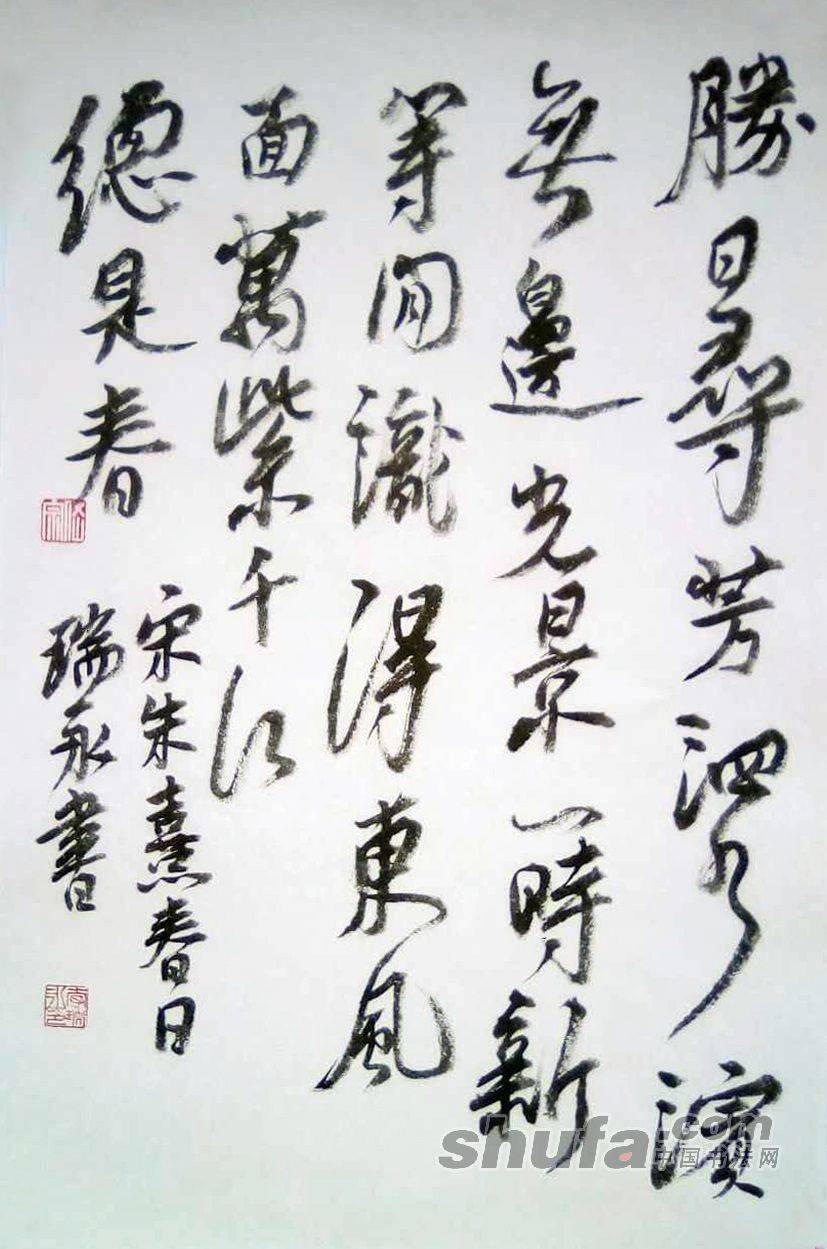 勝日尋芳泗水濱
無邊光景一時新
等閒識得東風
面萬紫千红
總是春
宋朱熹春日
瑞永書
shufa.com
中国书法网